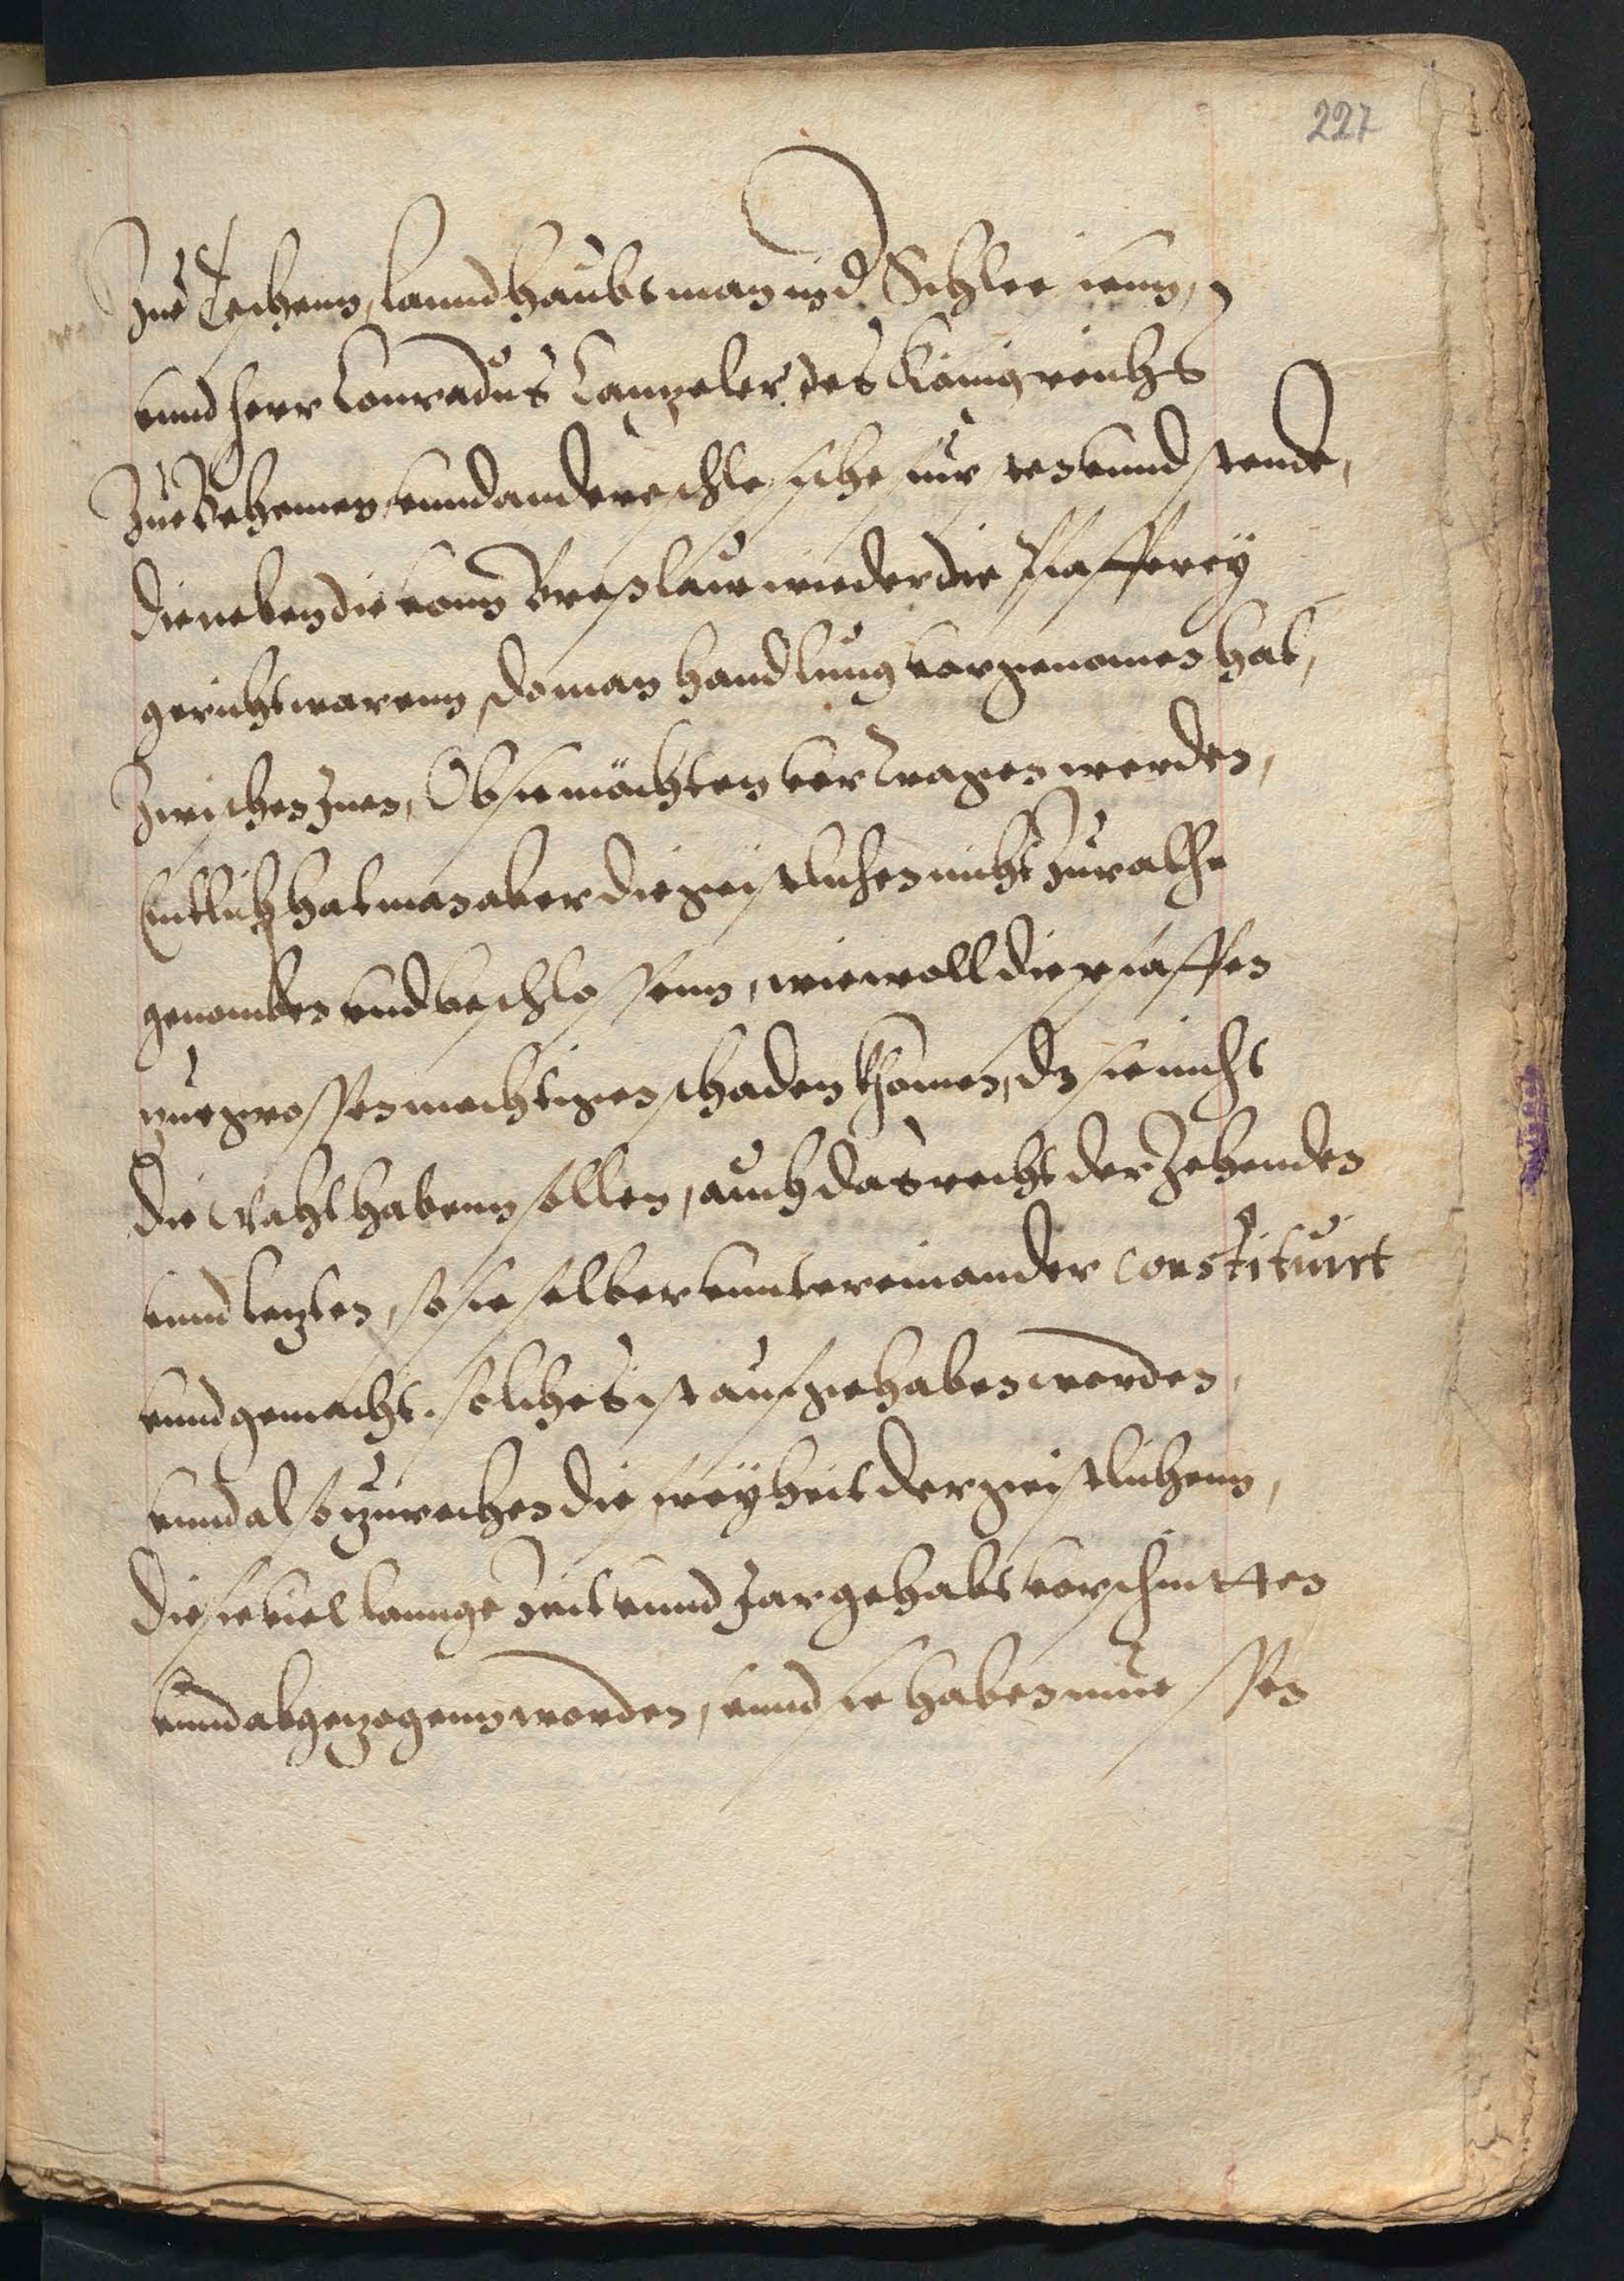 227
Zue Teschenn, Lanndhaubtman in d. Schlesienn,
vnnd herr Conradus Cantzeler des Königreichs
Zue Behemen, vnnd andere schlesische fürsten vnnd stende,
die neben die vonn Breßlaw wieder die Pfafferey
gericht warenn, do man handlung vorgenomen hat,
Zwischen Inen, Ob sie möchten vertragen werden,
Entlich hat man aber die geistlichen nicht zu rathe
genomben vnd beschlossenn, wiewoll die pfaffen
zue grossen mechtigen schaden khomen, dz sie nicht
die Wahl habenn sollen, auch das recht der Zehenden
vnnd letzten, so sie selber vnntereinander constituirt
vnnd gemacht. solches ist aufgehaben worden,
vnnd also zurechen die freyheit der geistlichenn,
die sie viel lannge Zeit vnnd Jar gehabt vorschnitten
vnnd abgezogenn worden, vnnd sie haben muessen